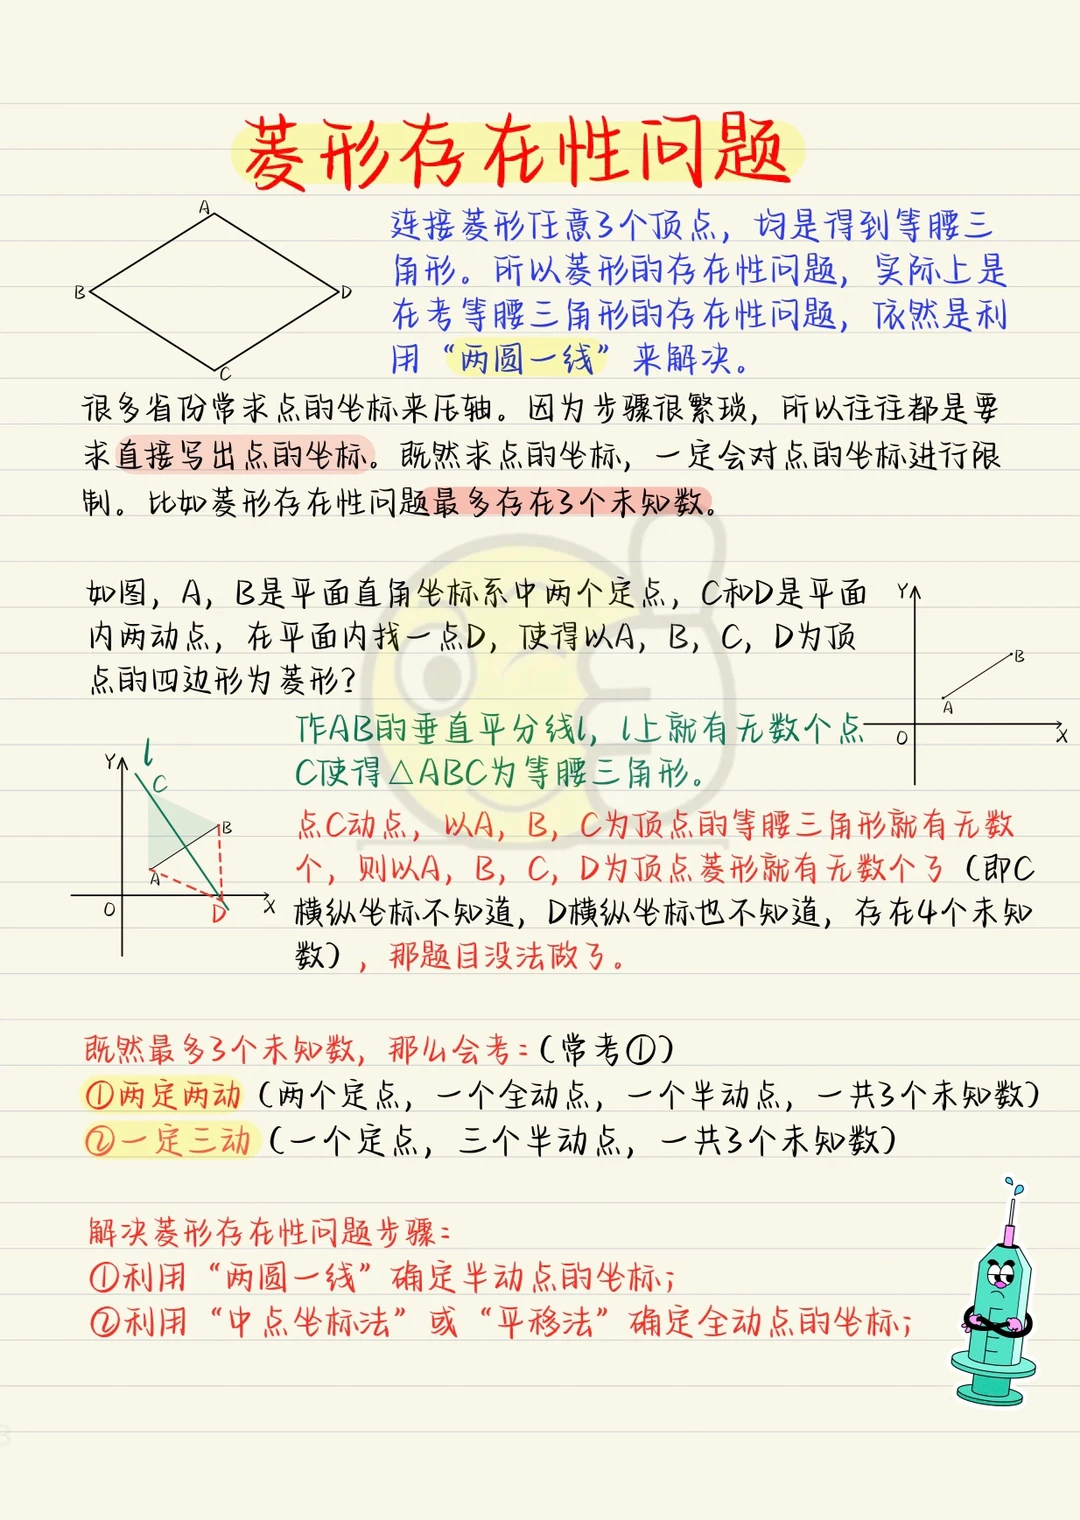 菱形存在性问题
A
B
D
C
连接菱形任意3个顶点，均是得到等腰三
角形。所以菱形的存在性问题，实际上是
在考等腰三角形的存在性问题，依然是利
用“两圆一线”来解决。
很多省份常求点的坐标来压轴。因为步骤很繁琐，所以往往都是要
求直接写出点的坐标。既然求点的坐标，一定会对点的坐标进行限
制。比如菱形存在性问题最多存在3个未知数。
如图，A，B是平面直角坐标系中两个定点，C和D是平面
内两动点，在平面内找一点D，使得以A，B，C，D为顶
点的四边形为菱形？
Y
B
A
O
X
作AB的垂直平分线l，l上就有无数个点
C使得△ABC为等腰三角形。
Y
l
C
B
A
O
D
X
点C动点，以A，B，C为顶点的等腰三角形就有无数
个，则以A，B，C，D为顶点菱形就有无数个了（即C
横纵坐标不知道，D横纵坐标也不知道，存在4个未知
数），那题目没法做了。
既然最多3个未知数，那么会考：（常考①）
①两定两动（两个定点，一个全动点，一个半动点，一共3个未知数）
②一定三动（一个定点，三个半动点，一共3个未知数）
解决菱形存在性问题步骤：
①利用“两圆一线”确定半动点的坐标；
②利用“中点坐标法”或“平移法”确定全动点的坐标；